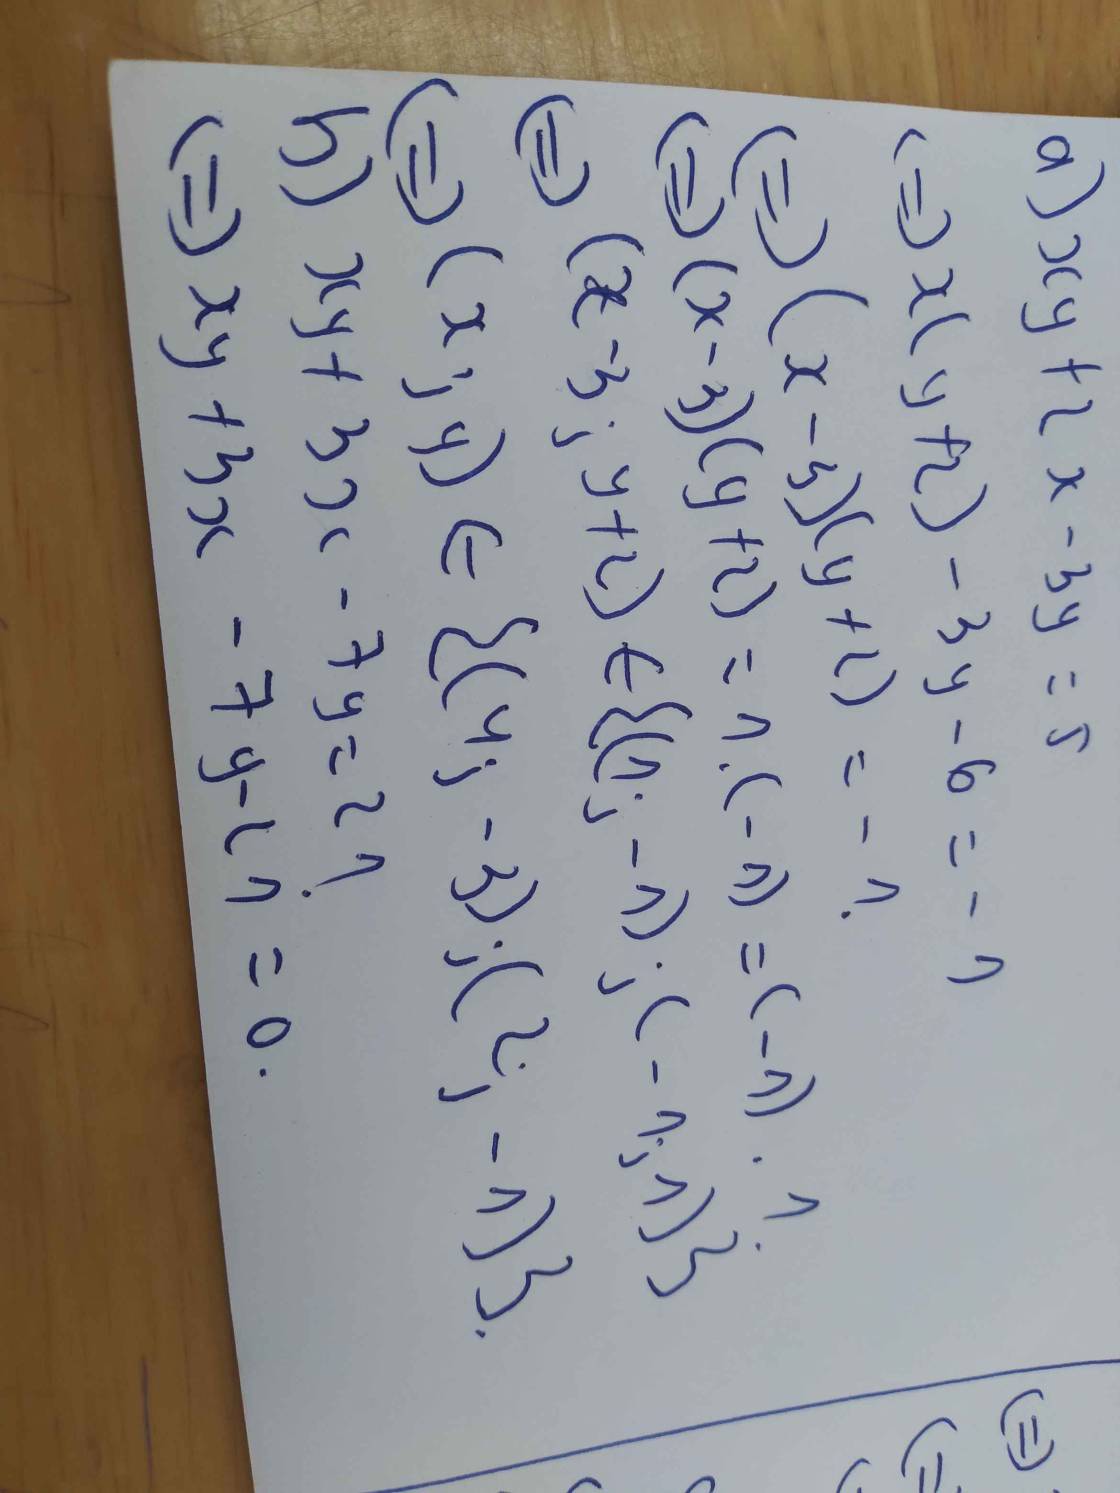 a) xy + 2x - 3y = 5
(=) x(y+2) - 3y - 6 = -1
(=) (x-3)(y+2) = -1.
(=) (x-3)(y+2) = 1.(-1) = (-1).1.
(=) (x-3; y+2) ∈ {(1; -1); (-1; 1)}
(=) (x; y) ∈ {(4; -3); (2; -1)}.
b) xy + 3x - 7y = 21.
(=) xy + 3x - 7y - 21 = 0.
(=)
(=)